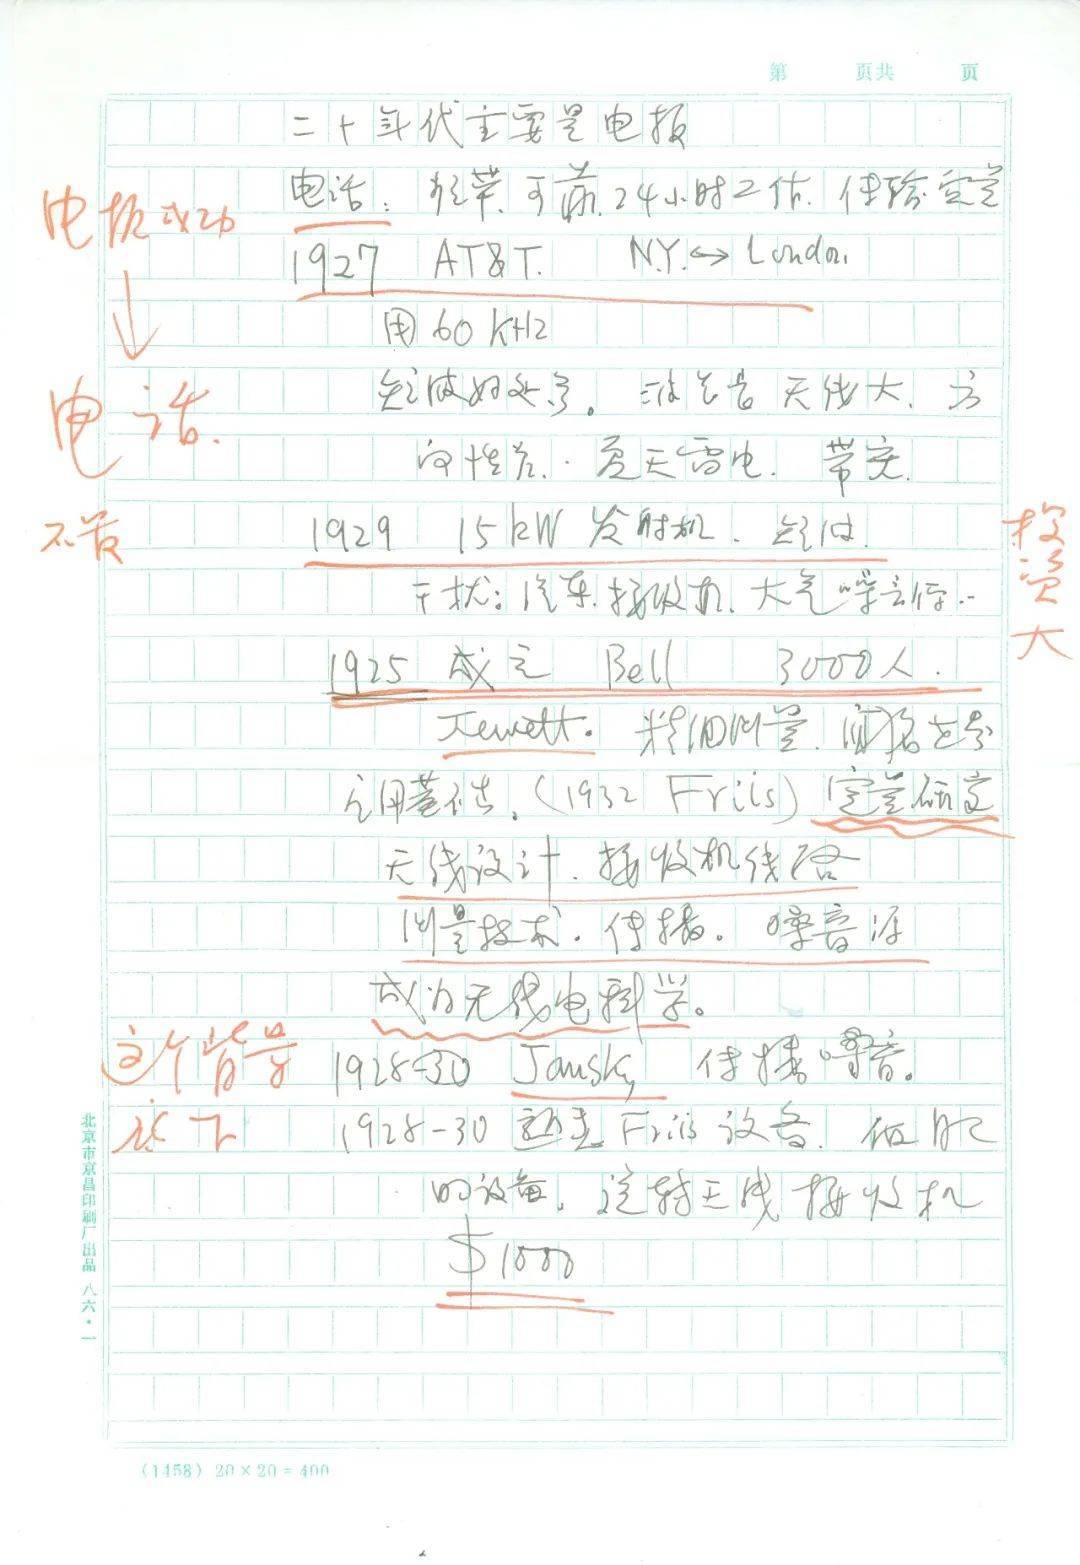 第 页共 页
二十年代主要是电报
电话： 可靠.24小时工作.
1927 AT&T. N.Y.↔London.
用60 KHz
短波好处多。 天线大. 方
向性差. 夏天雷电. 带宽.
1929 15kW 发射机. 短波.
干扰：汽车.接收机.大气噪音
1925 成立 Bell 3000人.
Jewett. 测量.
(1932 Friis) 定量研究
天线设计.接收机线路
测量技术.传播。噪音源
成为无线电科学。
1928-30 Jansky 传播噪音。
1928-30 Friis设备.
的设备. 旋转天线 接收机
$1000
电报成功
↓
电话.
投资大
这个背景
北京市京昌印刷厂出品 八六·一
(1458) 20×20=400